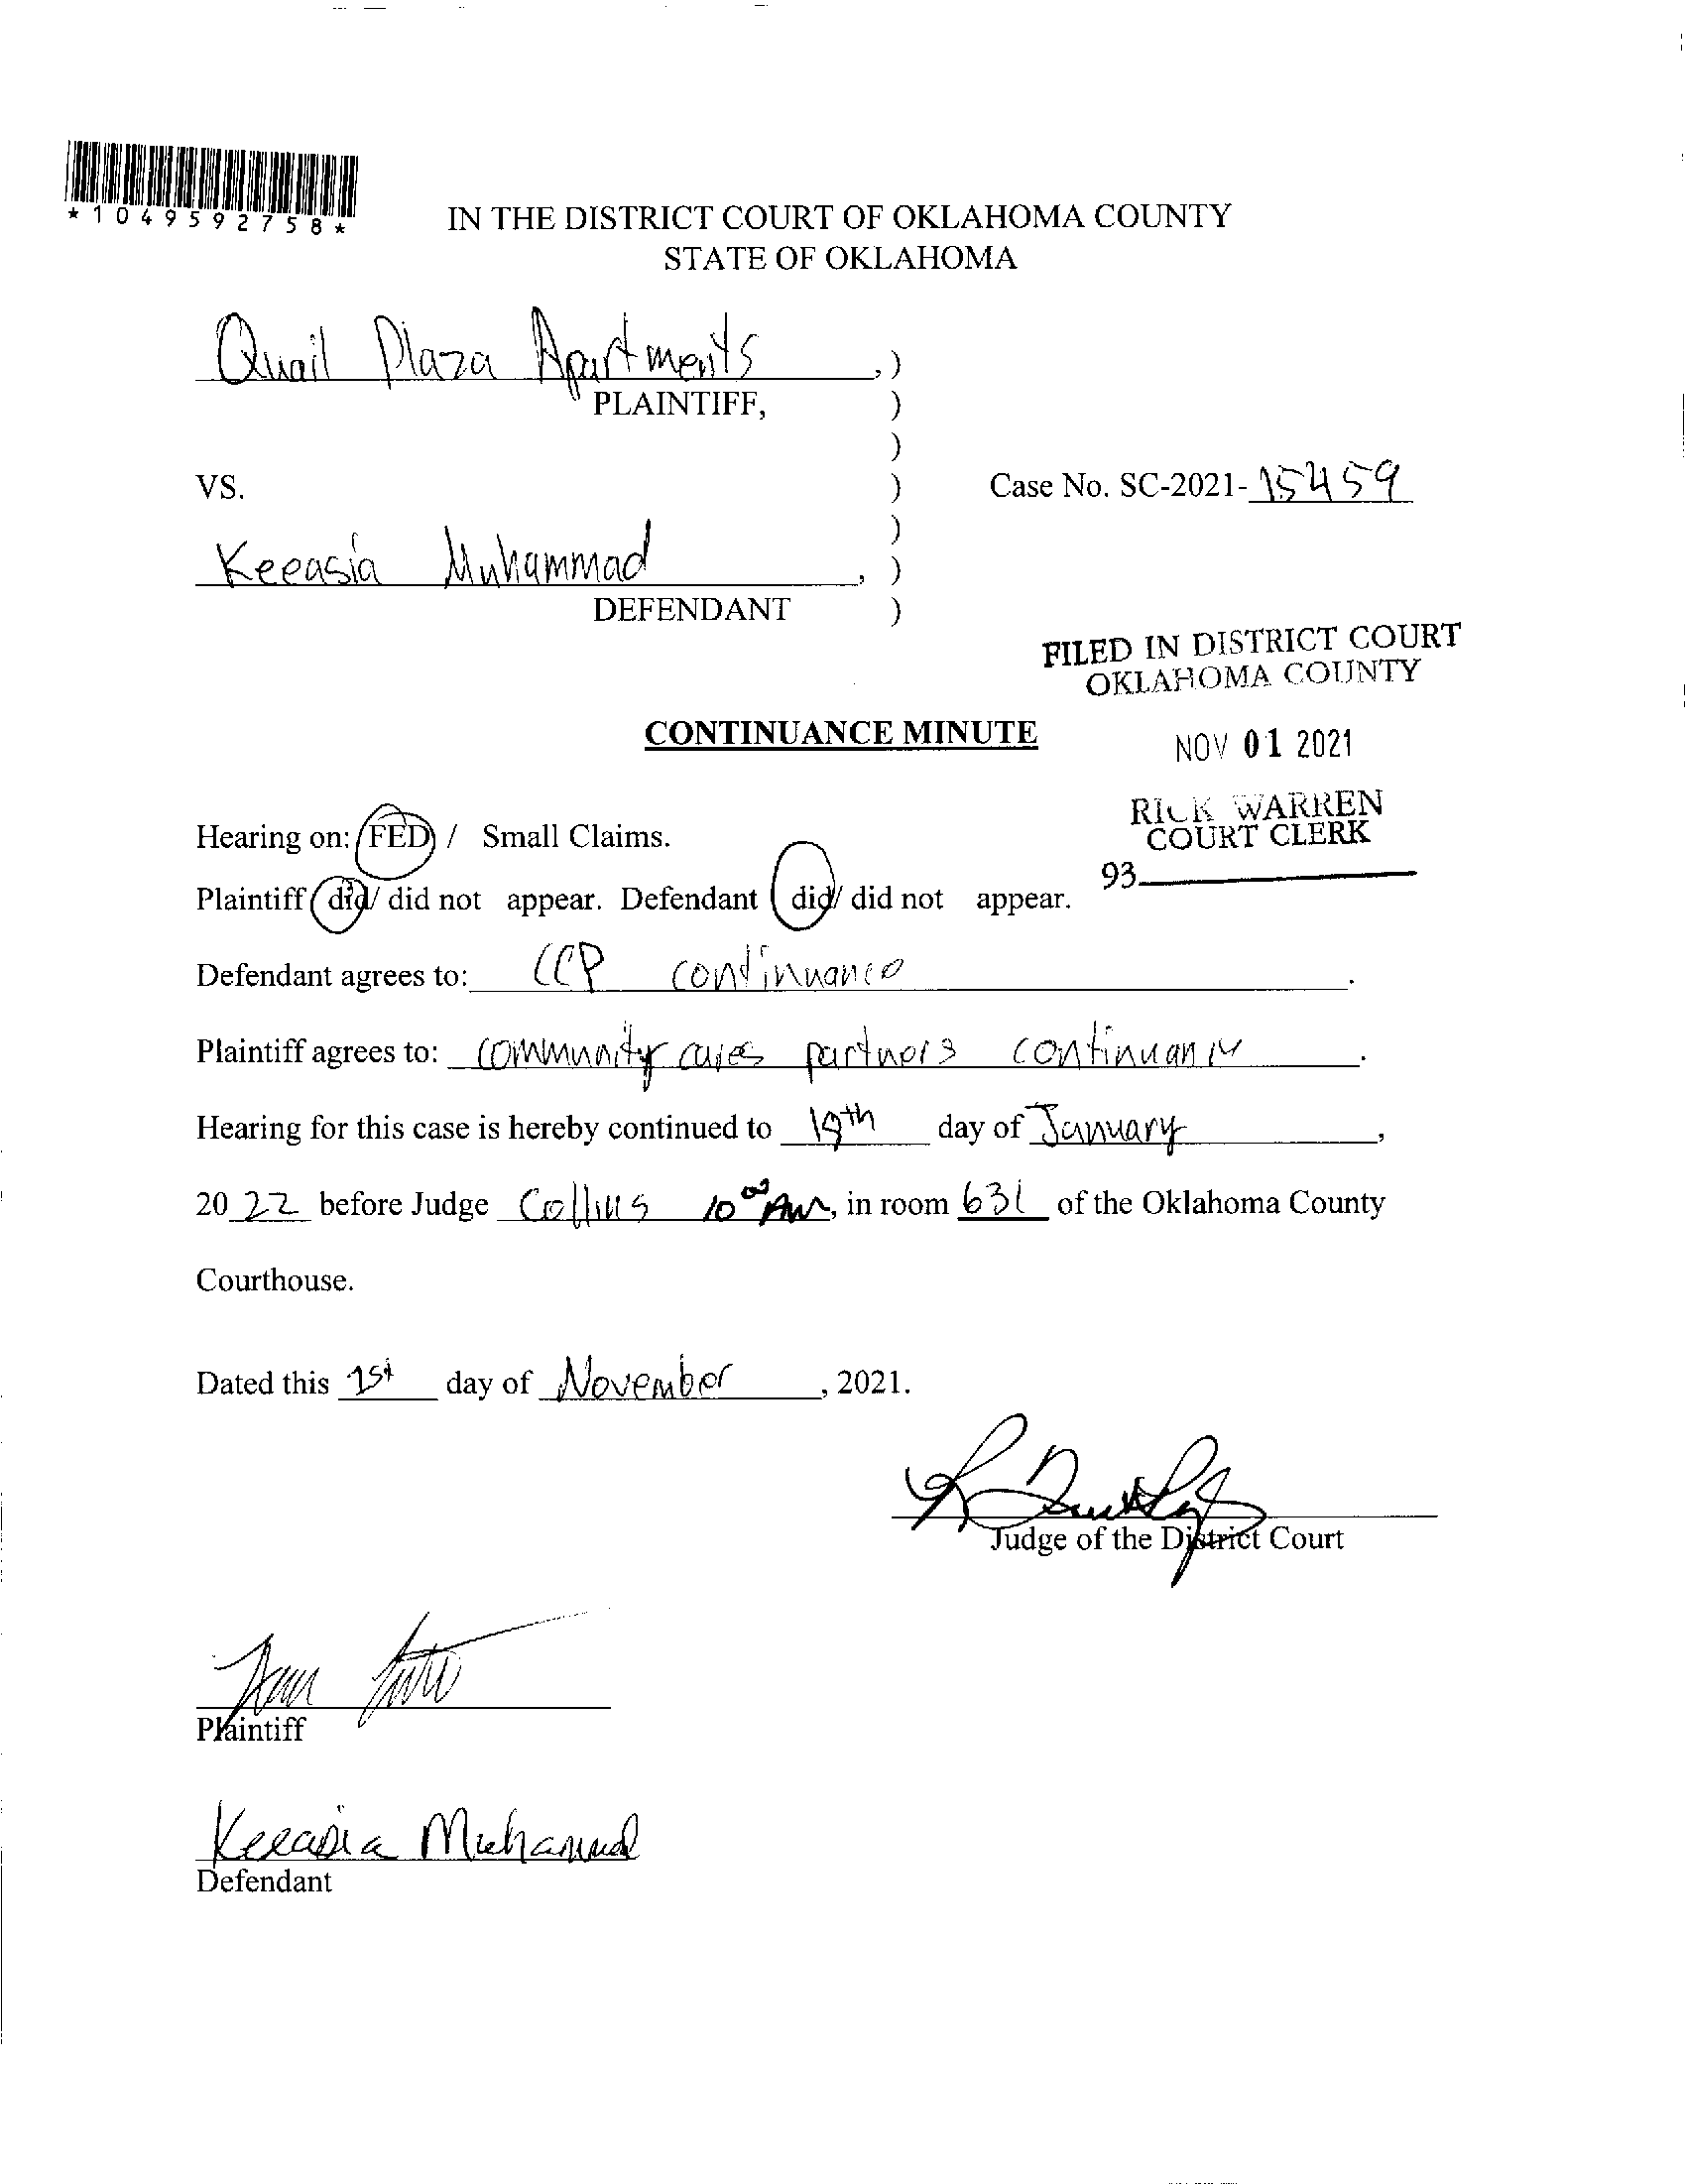 *1049592758*
IN THE DISTRICT COURT OF OKLAHOMA COUNTY
STATE OF OKLAHOMA
Quail Plaza Apartments ,)
PLAINTIFF, )
)
VS. ) Case No. SC-2021-15459
)
Keeasia Muhammad , )
DEFENDANT )
FILED IN DISTRICT COURT
OKLAHOMA COUNTY
CONTINUANCE MINUTE
NOV 01 2021
RICK WARREN
COURT CLERK
93
Hearing on: FED / Small Claims.
Plaintiff did/ did not appear. Defendant did/ did not appear.
Defendant agrees to: CCP continuance .
Plaintiff agrees to: community cares partners continuance .
Hearing for this case is hereby continued to 19th day of January ,
20 22 before Judge Collins 10 00 AM, in room 631 of the Oklahoma County
Courthouse.
Dated this 1st day of November , 2021.
Judge of the District Court
Plaintiff
Keeasia Muhammad
Defendant